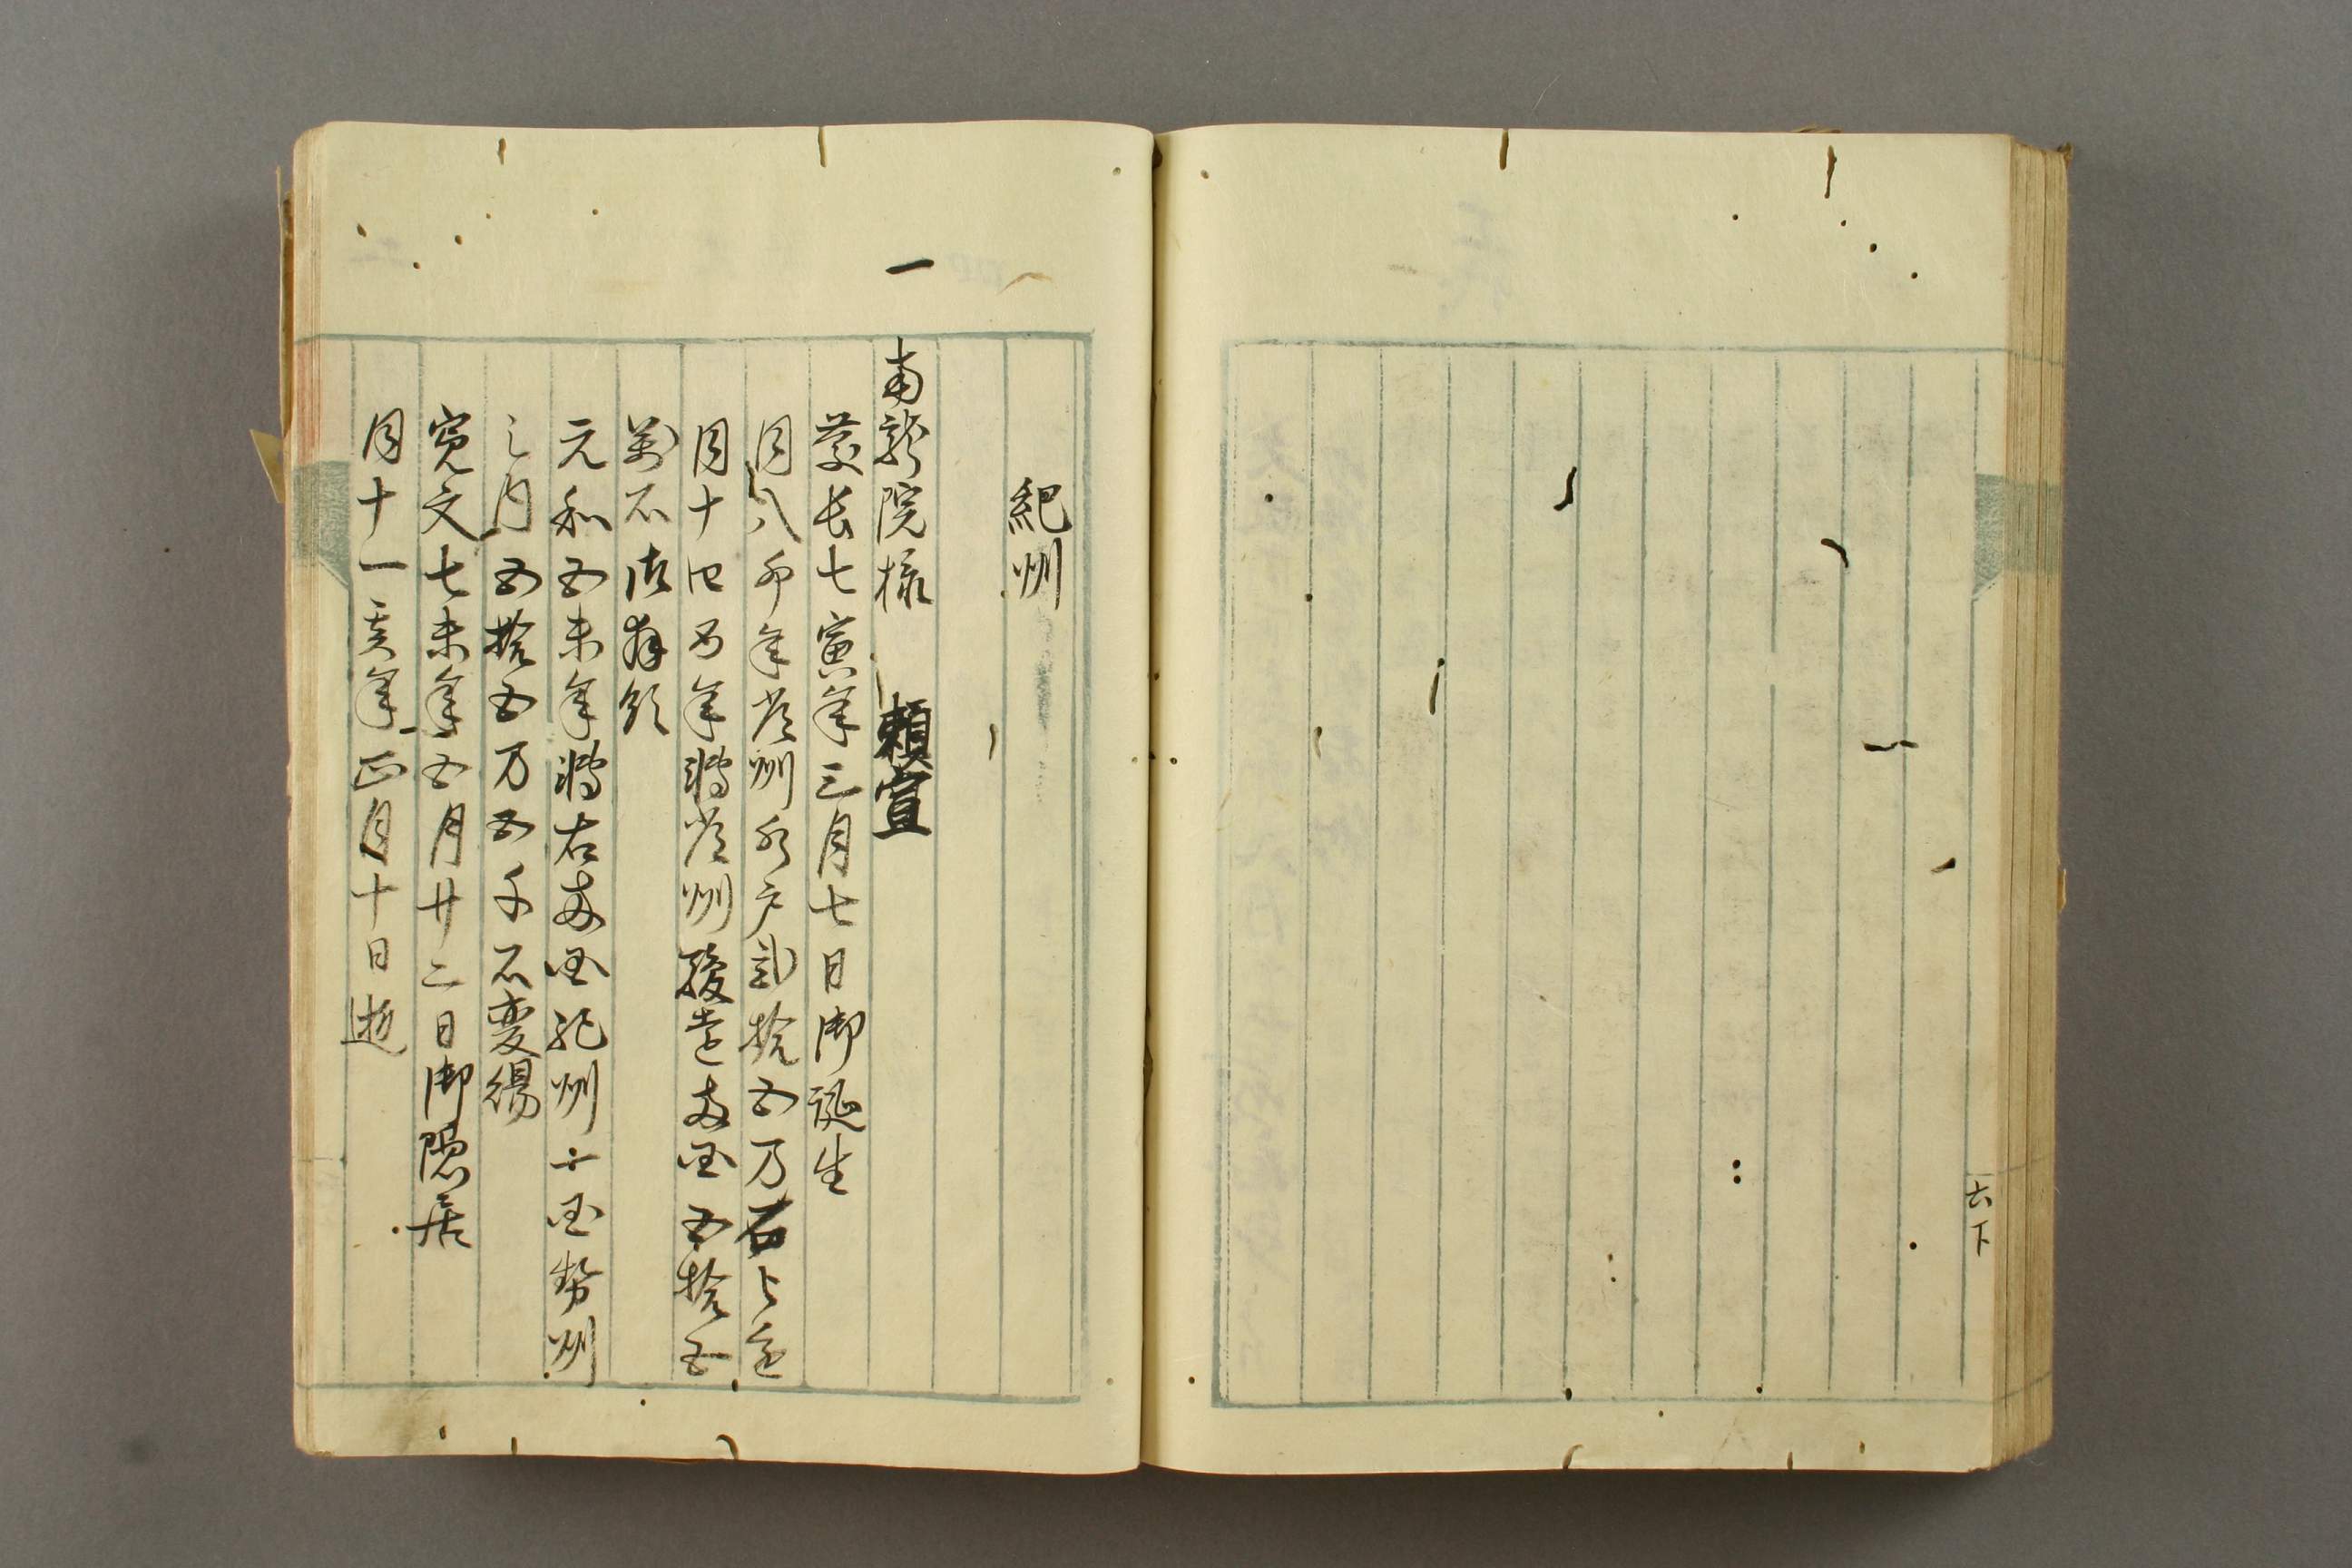 六下
紀州
一 南龍院様 頼宣
慶長七寅年三月七日御誕生
同八卯年常州水戸弐拾五万石被進
同十四酉年轉常州駿遠両国五拾五
萬石御拝領
元和五未年轉右両国紀州一国勢州
之内五拾五万五千石変
寛文七未年五月廿二日御隠居
同十一亥年正月十日逝